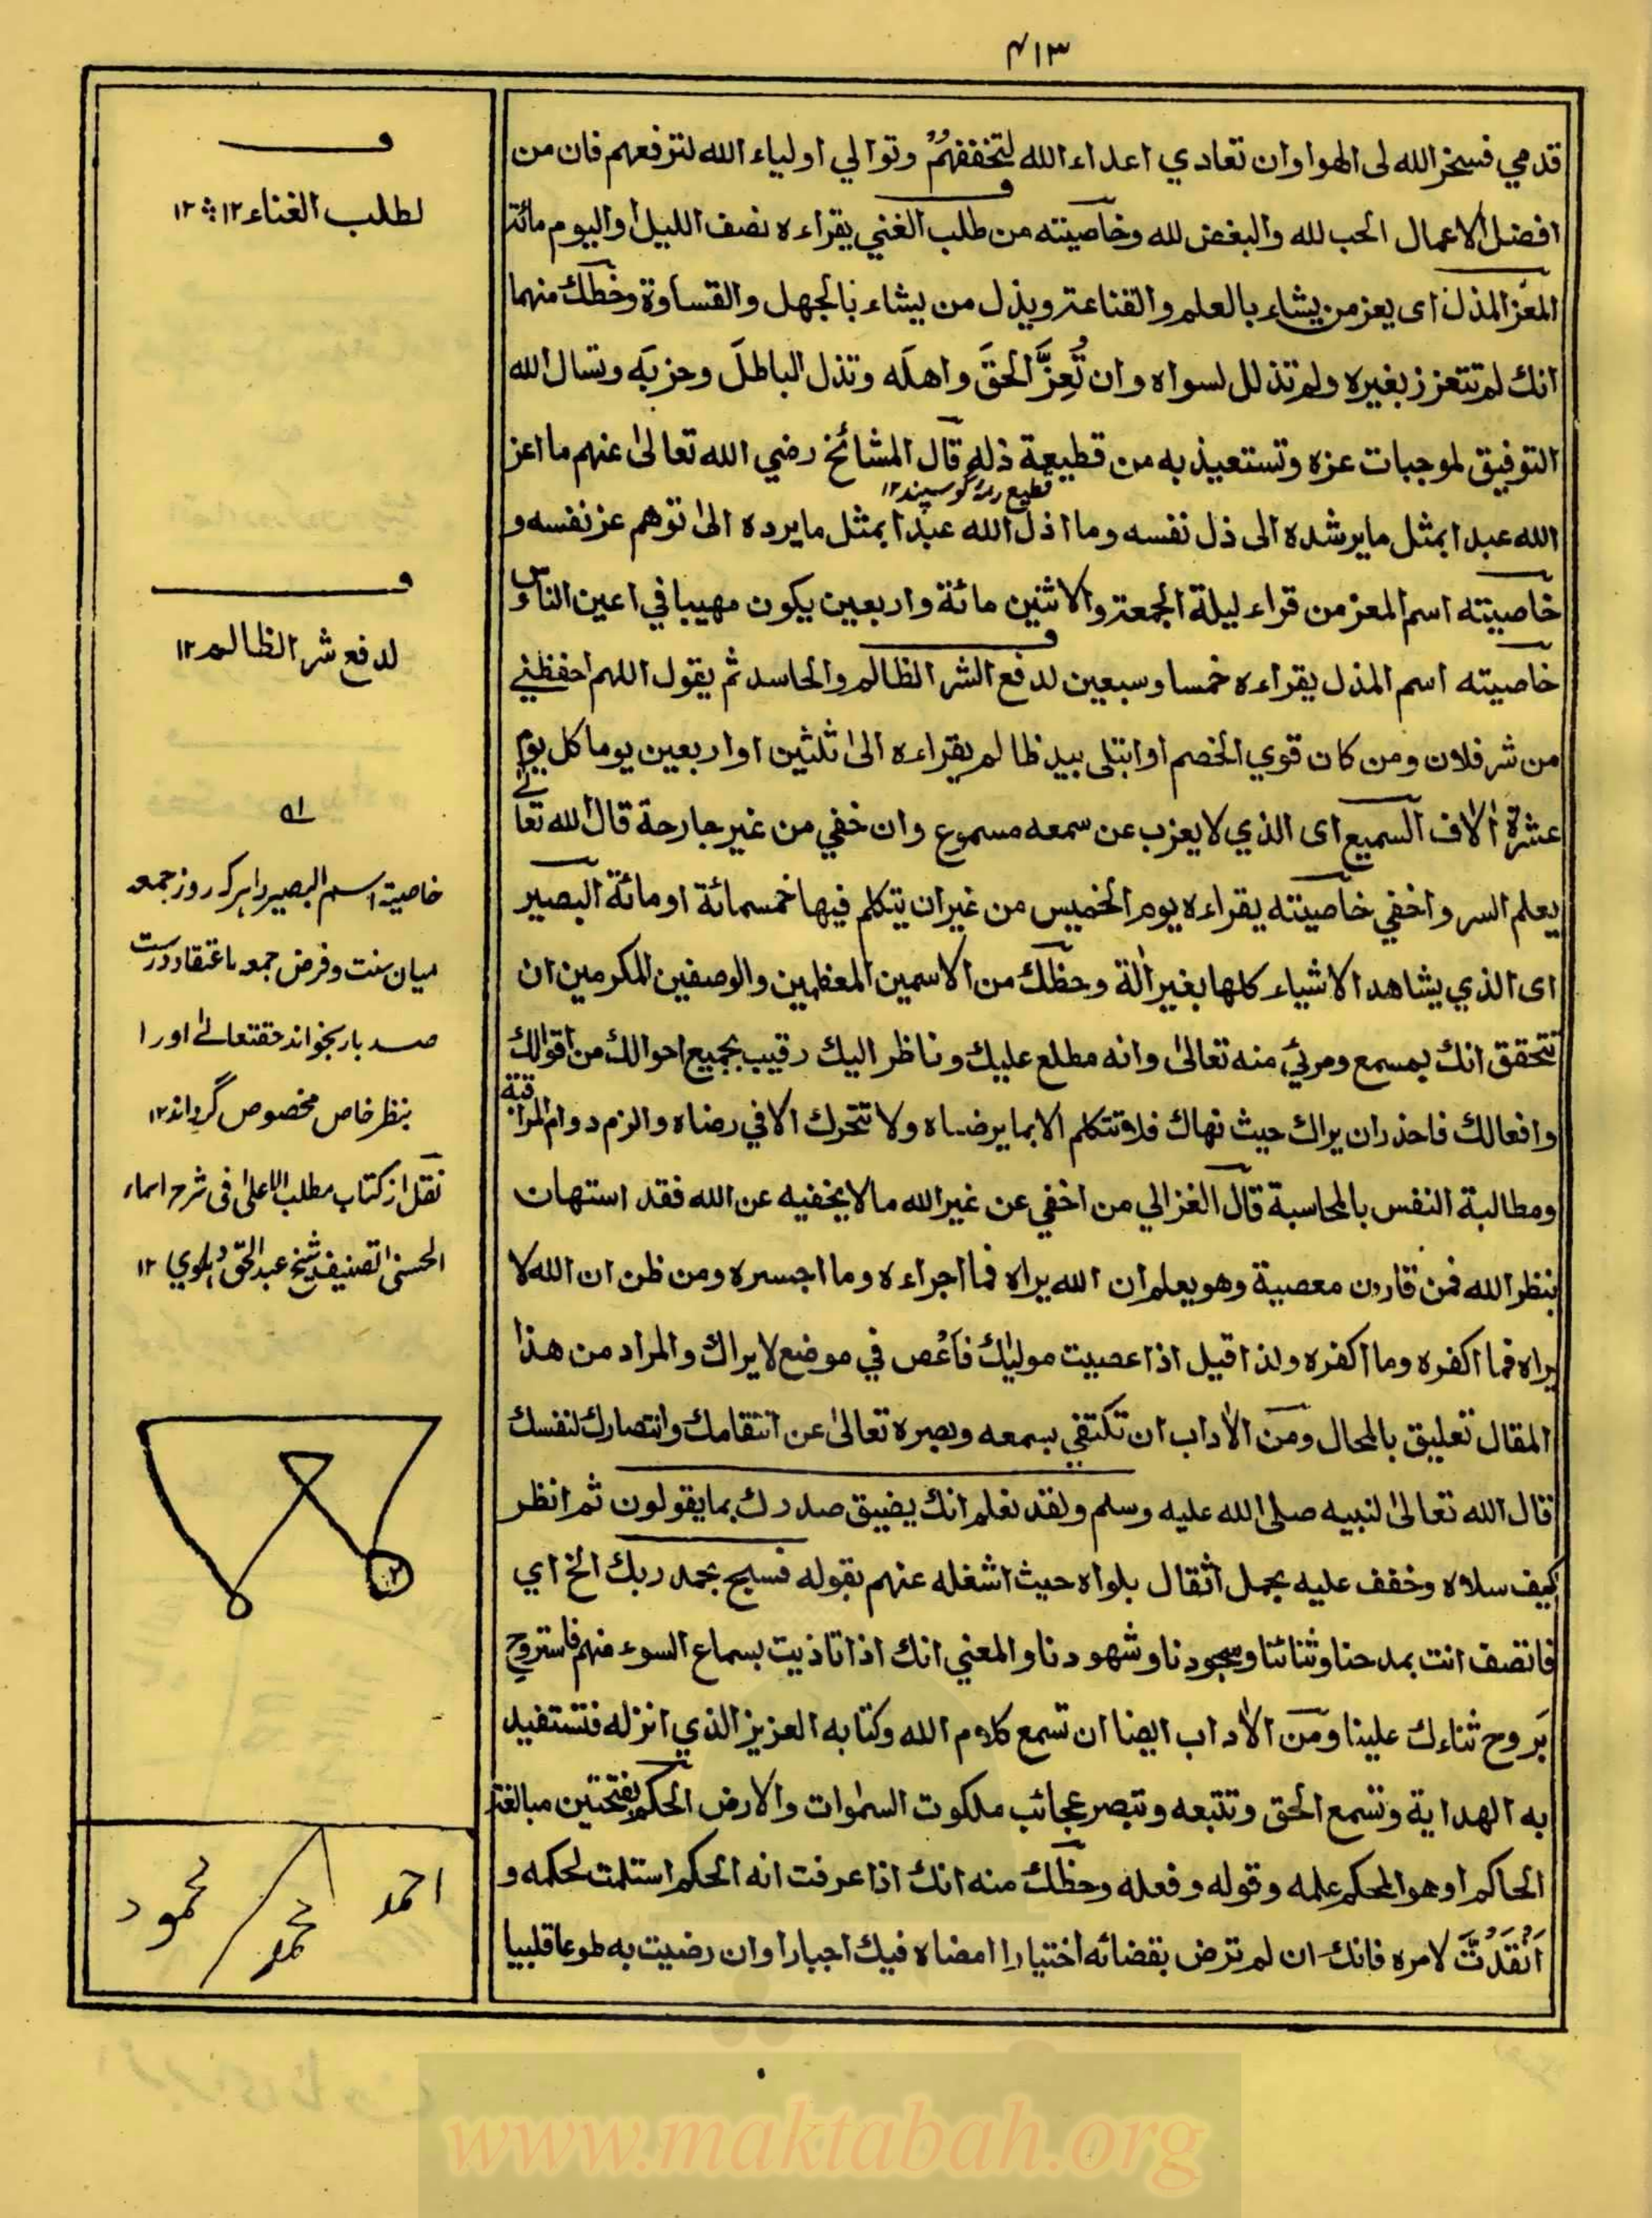 ٤١٣
قدمي فسخر الله لى الهوا وان تعادي اعداء الله لتخففهم وتوالي اولياء الله لترفعهم فان من
افضل الاعمال الحب لله والبغض لله وخاصيته من طلب الغني يقراءه نصف الليل او اليوم مائة
المعز المذل اى يعز من يشاء بالعلم والقناعة ويذل من يشاء بالجهل والقساوة وحظك منهما
انك لم تتعزز بغيره ولم تذلل لسواه وان تُعِزَّ الحقَ واهلَه وتذل الباطلَ وحزبَه وتسال الله
التوفيق لموجبات عزه وتستعيذ به من قطيعة ذله قال المشائخ رضي الله تعالىٰ عنهم ما اعز
قطيع رمهٔ گوسپند ١٢
الله عبدا بمثل ما يرشده الى ذل نفسه وما اذل الله عبدا بمثل ما يرده الىٰ توهم عز نفسه و
خاصيته اسم المعز من قراء ليلة الجمعة والاثنين مائة واربعين يكون مهيبا في اعين الناس و
خاصيته اسم المذل يقراءه خمسا وسبعين لدفع الشر الظالم والحاسد ثم يقول اللهم احفظني
من شر فلان ومن كان قوي الخصم او ابتلى بيد ظالم يقراءه الىٰ ثلثين او اربعين يوما كل يوم
عشرة اٰلاف السميع اى الذي لا يعزب عن سمعه مسموع وان خفي من غير جارحة قال الله تعالےٰ
يعلم السر واخفي خاصيته يقراءه يوم الخميس من غير ان يتكلم فيها خمسمائة او مائة البصير
اى الذي يشاهد الاشياء كلها بغير اٰلة وحظك من الاسمين المعظمين والوصفين المكرمين ان
تتحقق انك بمسمع ومرئي منه تعالىٰ وانه مطلع عليك وناظر اليك رقيب بجميع احوالك من اقوالك
وافعالك فاحذر ان يراك حيث نهاك فلا تتكلم الا بما يرضاه ولا تتحرك الا في رضاه والزم دوام المراقبة
ومطالبة النفس بالمحاسبة قال الغزالي من اخفي عن غير الله ما لا يخفيه عن الله فقد استهان
بنظر الله فمن قارن معصية وهو يعلم ان الله يراه فما اجراءه وما اجسره ومن ظن ان الله لا
يراه فما اكفره وما اكفره ولذا قيل اذا عصيت موليٰك فاَعْص في موضع لا يراك والمراد من هذا
المقال تعليق بالمحال ومن الاٰداب ان تكتفي بسمعه وبصره تعالىٰ عن انتقامك وانتصارك لنفسك
قال الله تعالىٰ لنبيه صلى الله عليه وسلم ولقد نعلم انك يضيق صدرك بما يقولون ثم انظر
كيف سلاه وخفف عليه بحمل اثقال بلواه حيث اشغله عنهم بقوله فسبح بحمد ربك الخ اي
فانتصف انت بمدحنا وثنائنا وسجودنا وشهودنا والمعني انك اذا تاذيت بسماع السوء منهم فاستروح
بَروح ثناءك علينا ومن الاٰداب ايضا ان تسمع كلام الله وكتابه العزيز الذي انزله فتستفيد
به الهداية وتسمع الحق وتتبعه وتبصر عجائب ملكوت السمٰوات والارض الحكم بفتحتين مبالغة
الحاكم او هو المحكم علمه وقوله وفعله وحظك منه انك اذا عرفت انه الحكم استلمت لحكمه و
اَنْقَدْتَّ لامره فانك ان لم ترض بقضائه اختيارا امضاه فيك اجبارا وان رضيت به طوعا قلبيا
ف
لطلب الغناء ١٢ ؞ ١٢
ف
لدفع شر الظالم ١٢
خاصية اسم البصير را هر که روز جمعه
میان سنت و فرض جمعه باعتقاد درست
صد بار بخواند حقتعالےٰ او را
بنظر خاص مخصوص گرداند ١٢
نقل از کتاب مطلب الاعلی فی شرح اسماء
الحسنیٰ تصنیف شیخ عبد الحق دہلوی ١٢
احمد
محمد
محمود
www.maktabah.org